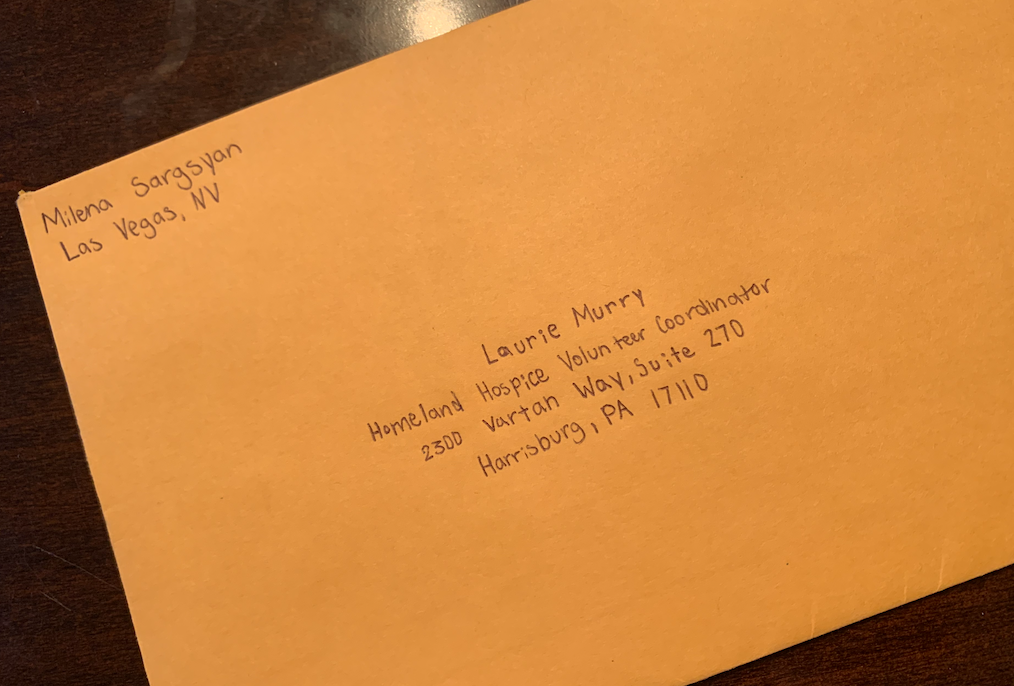 Milena Sargsyan
Las Vegas, NV
Laurie Murry
Homeland Hospice Volunteer Coordinator
2300 Vartan Way, Suite 270
Harrisburg, PA 17110